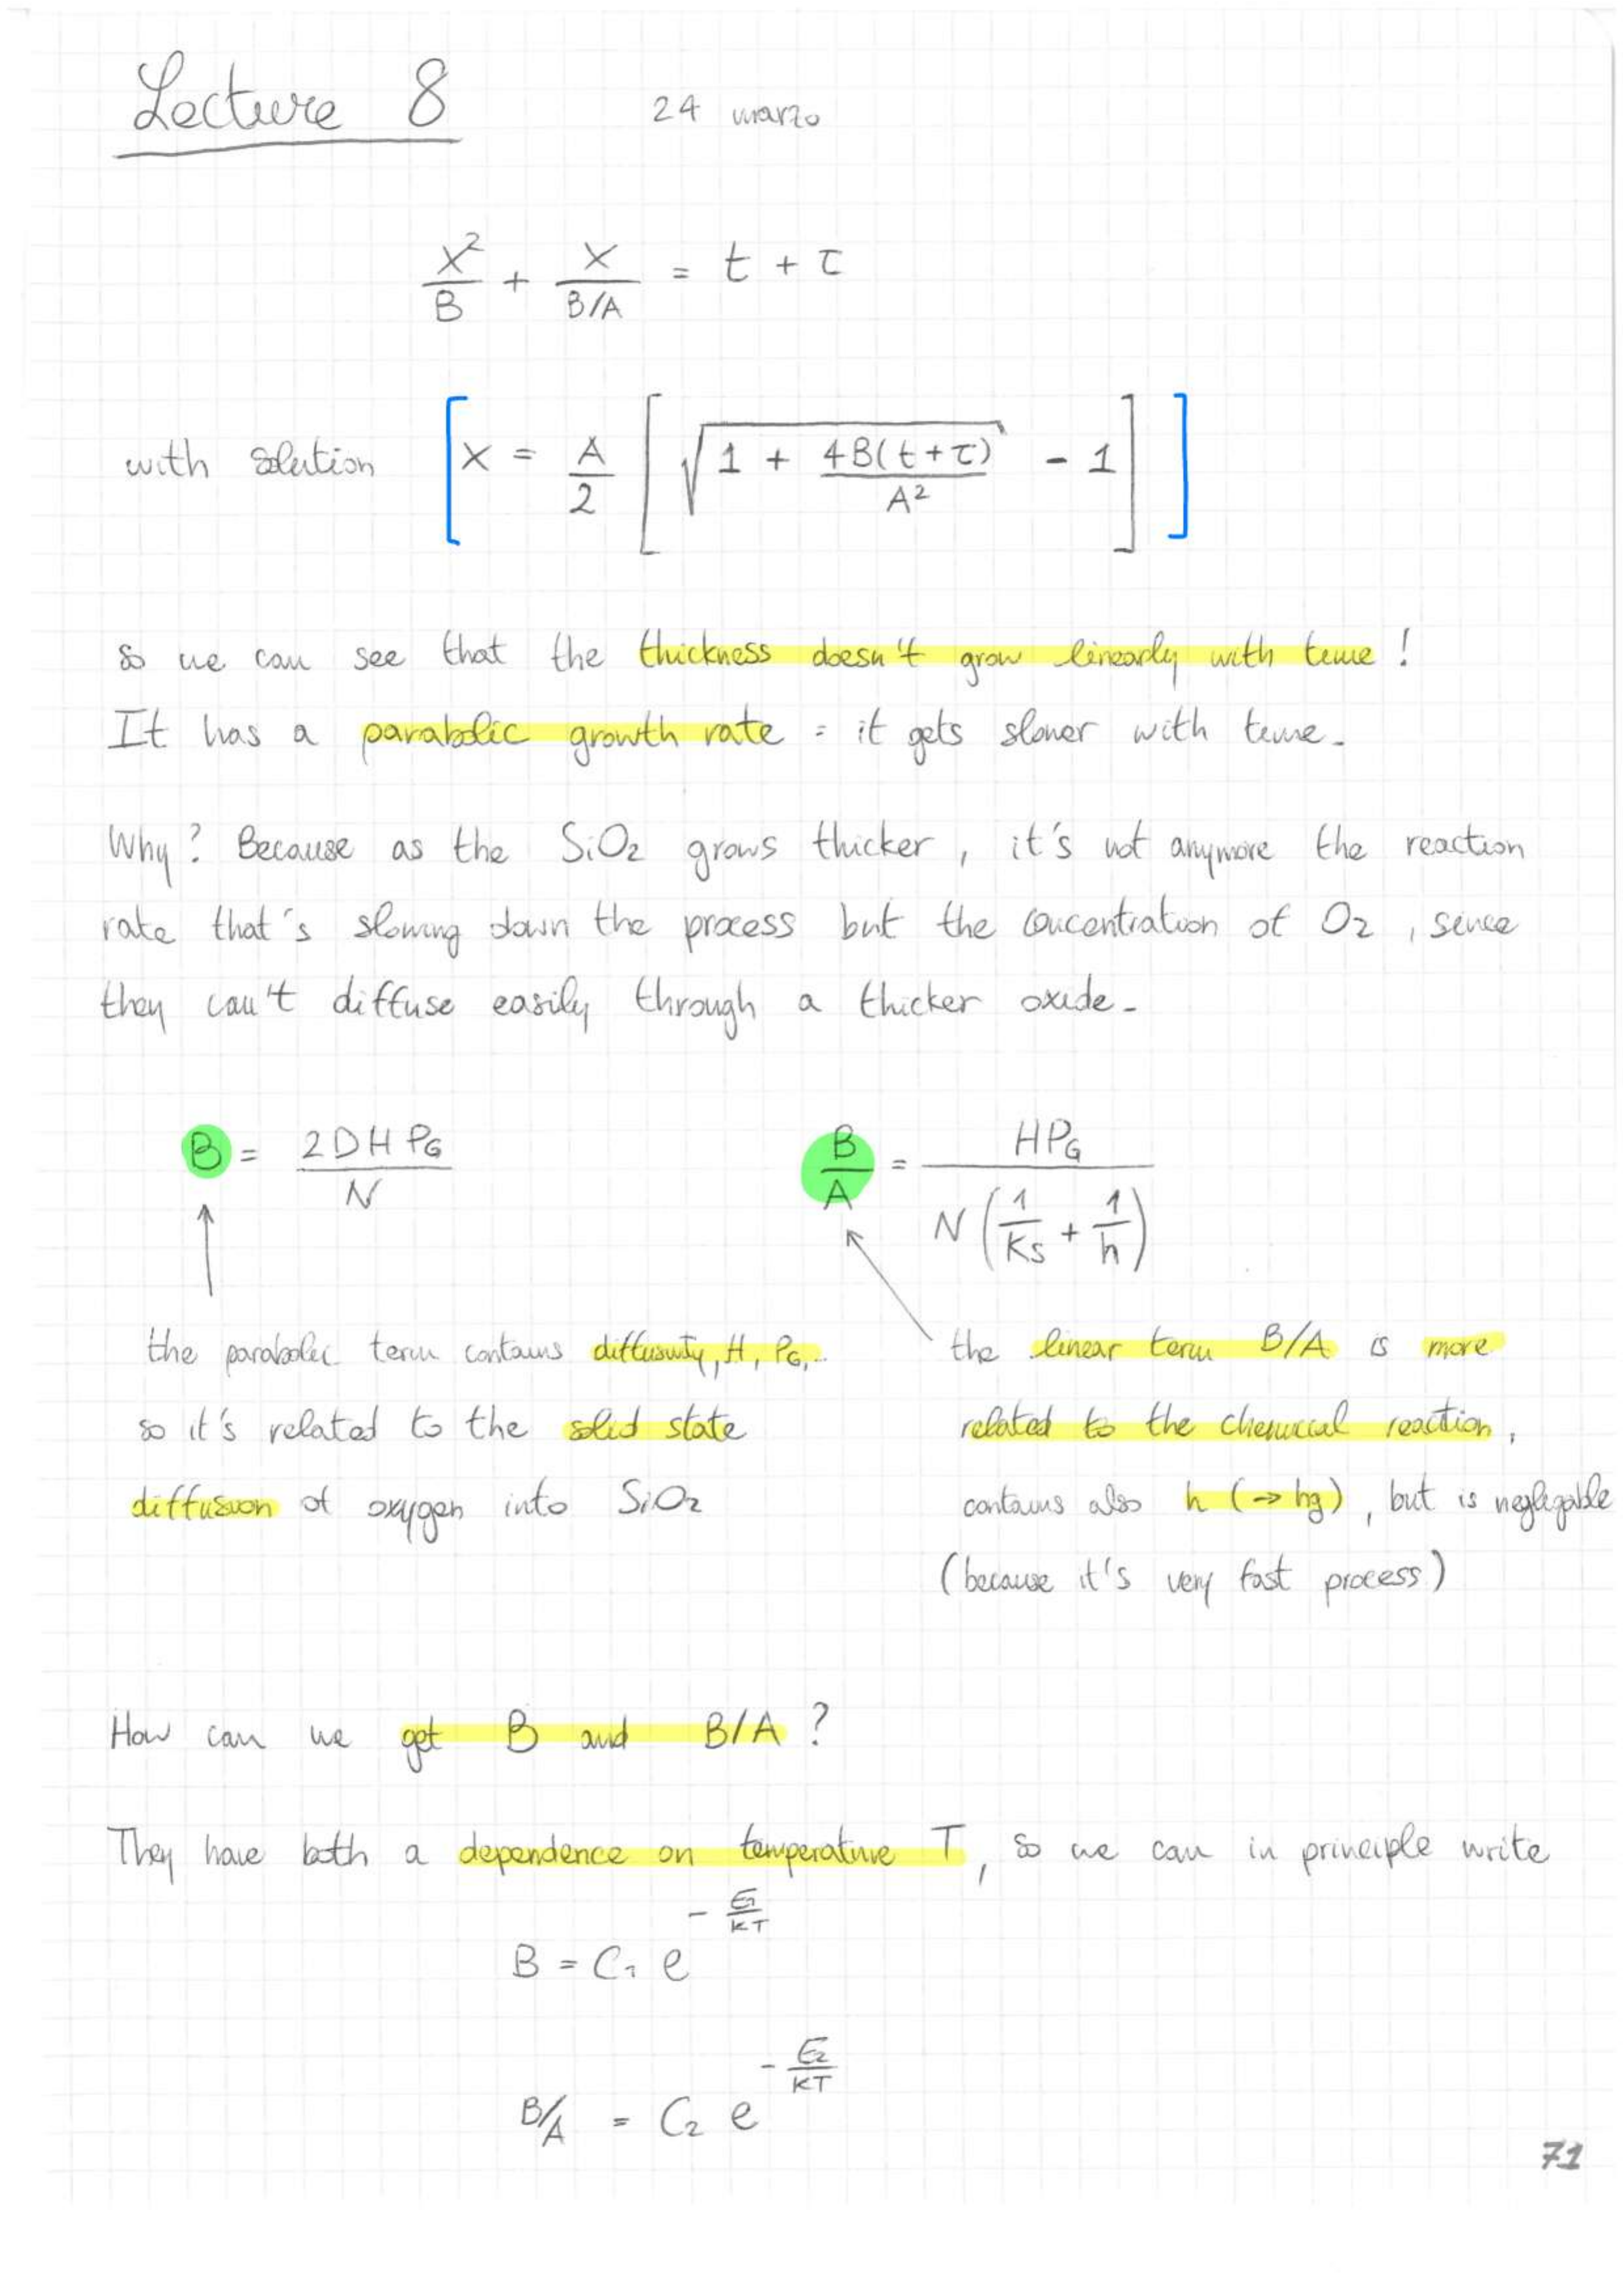 Lecture 8 24 marzo
X²/B + X/(B/A) = t + τ
with solution [X = A/2 [√(1 + 4B(t+τ)/A²) - 1]]
so we can see that the thickness doesn't grow linearly with time!
It has a parabolic growth rate = it gets slower with time.
Why? Because as the SiO₂ grows thicker, it's not anymore the reaction
rate that's slowing down the process but the concentration of O₂, since
they can't diffuse easily through a thicker oxide.
B = 2DHP_G/N
B/A = HP_G/(N(1/Ks + 1/h))
the parabolic term contains diffusivity, H, P_G,..
so it's related to the solid state
diffusion of oxygen into SiO₂
the linear term B/A is more
related to the chemical reaction,
contains also h (→ hg), but is negligable
(because it's very fast process)
How can we get B and B/A?
They have both a dependence on temperature T, so we can in principle write
B = C₁ e^(-E₁/KT)
B/A = C₂ e^(-E₂/KT)
71